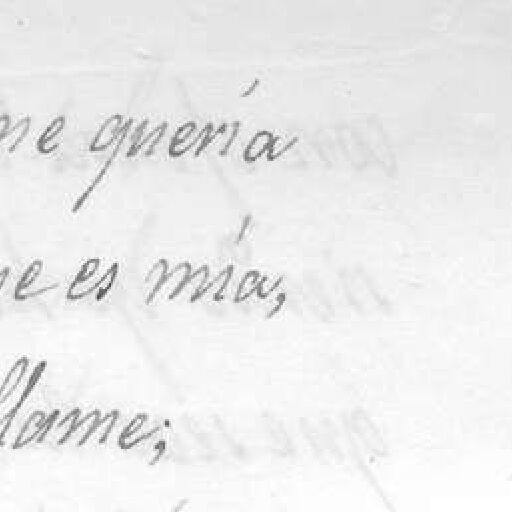 me quería
es mía,
llame;